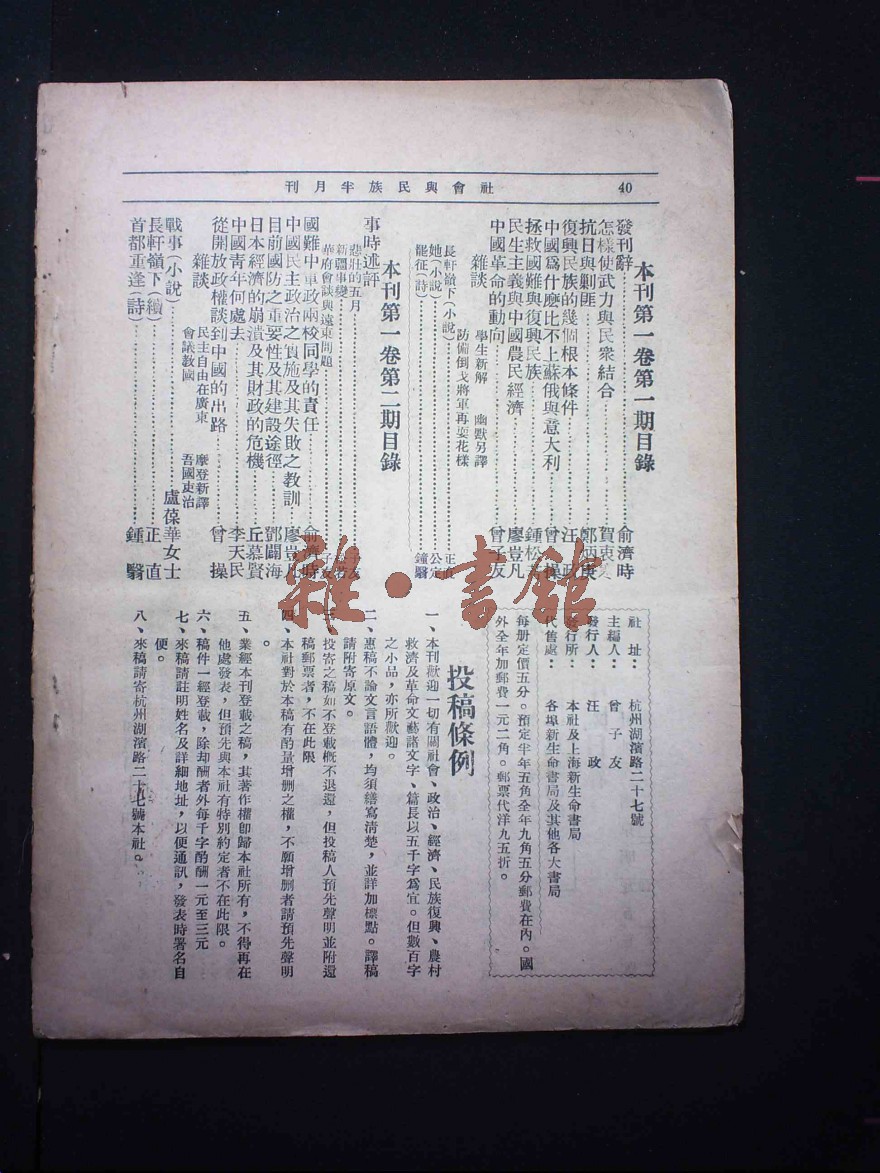 40
刊月半族民與會社
本刊第一卷第一期目錄
發刊辭……俞濟時
怎樣使武力與民衆結合……賀衷
抗日與剿匪……鄭炳庚
復興民族的幾個根本條件……汪政
中國爲什麼比不上蘇俄與意大利……曾操
拯救國難與復興民族……鍾松
民生主義與中國農民經濟……廖豈凡
中國革命的動向……曾子友
雜談
學生新解 幽默另譯
防備倒戈將軍再耍花樣
長軒嶺下(小說)……正直
她(小說)……公定
罷征(詩)……鐘翳
本刊第一卷第二期目錄
事時述評
悲壯的五月……子友
新疆事變
華府會談與遠東問題……子友
國難中軍政兩校同學的責任……俞濟時
中國民主政治之實施及其失敗之教訓……廖豈凡
目前國防之重要性及其建設途徑……鄧闘海
日本經濟的崩潰及其財政的危機……丘慕賢
中國青年何處去……李天民
從開放政權談到中國的出路……曾操
雜談
民主自由在廣東 摩登新譯
會議教國 吾國吏治
戰事(小說)……盧葆華女士
長軒嶺下(續)……正直
首都重逢(詩)……鍾翳
社址：杭州湖濱路二十七號
主編人：曾子友
發行人：汪政
發行所：本社及上海新生命書局
代售處：各埠新生命書局及其他各大書局
每册定價五分。預定半年五角全年九角五分郵費在內。國
外全年加郵費一元二角。郵票代洋九五折。
投稿條例
一、本刊歡迎一切有關社會、政治、經濟、民族復興、農村
救濟及革命文藝諸文字、篇長以五千字爲宜。但數百字
之小品，亦所歡迎。
二、惠稿不論文言語體，均須繕寫清楚，並詳加標點。譯稿
請附寄原文。
三、投寄之稿如不登載概不退還，但投稿人預先聲明並附還
稿郵票者，不在此限
四、本社對於本稿有酌量增删之權，不願增删者請預先聲明
。
五、業經本刊登載之稿，其著作權卽歸本社所有，不得再在
他處發表，但預先與本社有特別約定者不在此限。
六、稿件一經登載，除却酬者外每千字酌酬一元至三元
七、來稿請註明姓名及詳細地址，以便通訊，發表時署名自
便。
八、來稿請寄杭州湖濱路二十七號本社。
雜·書館